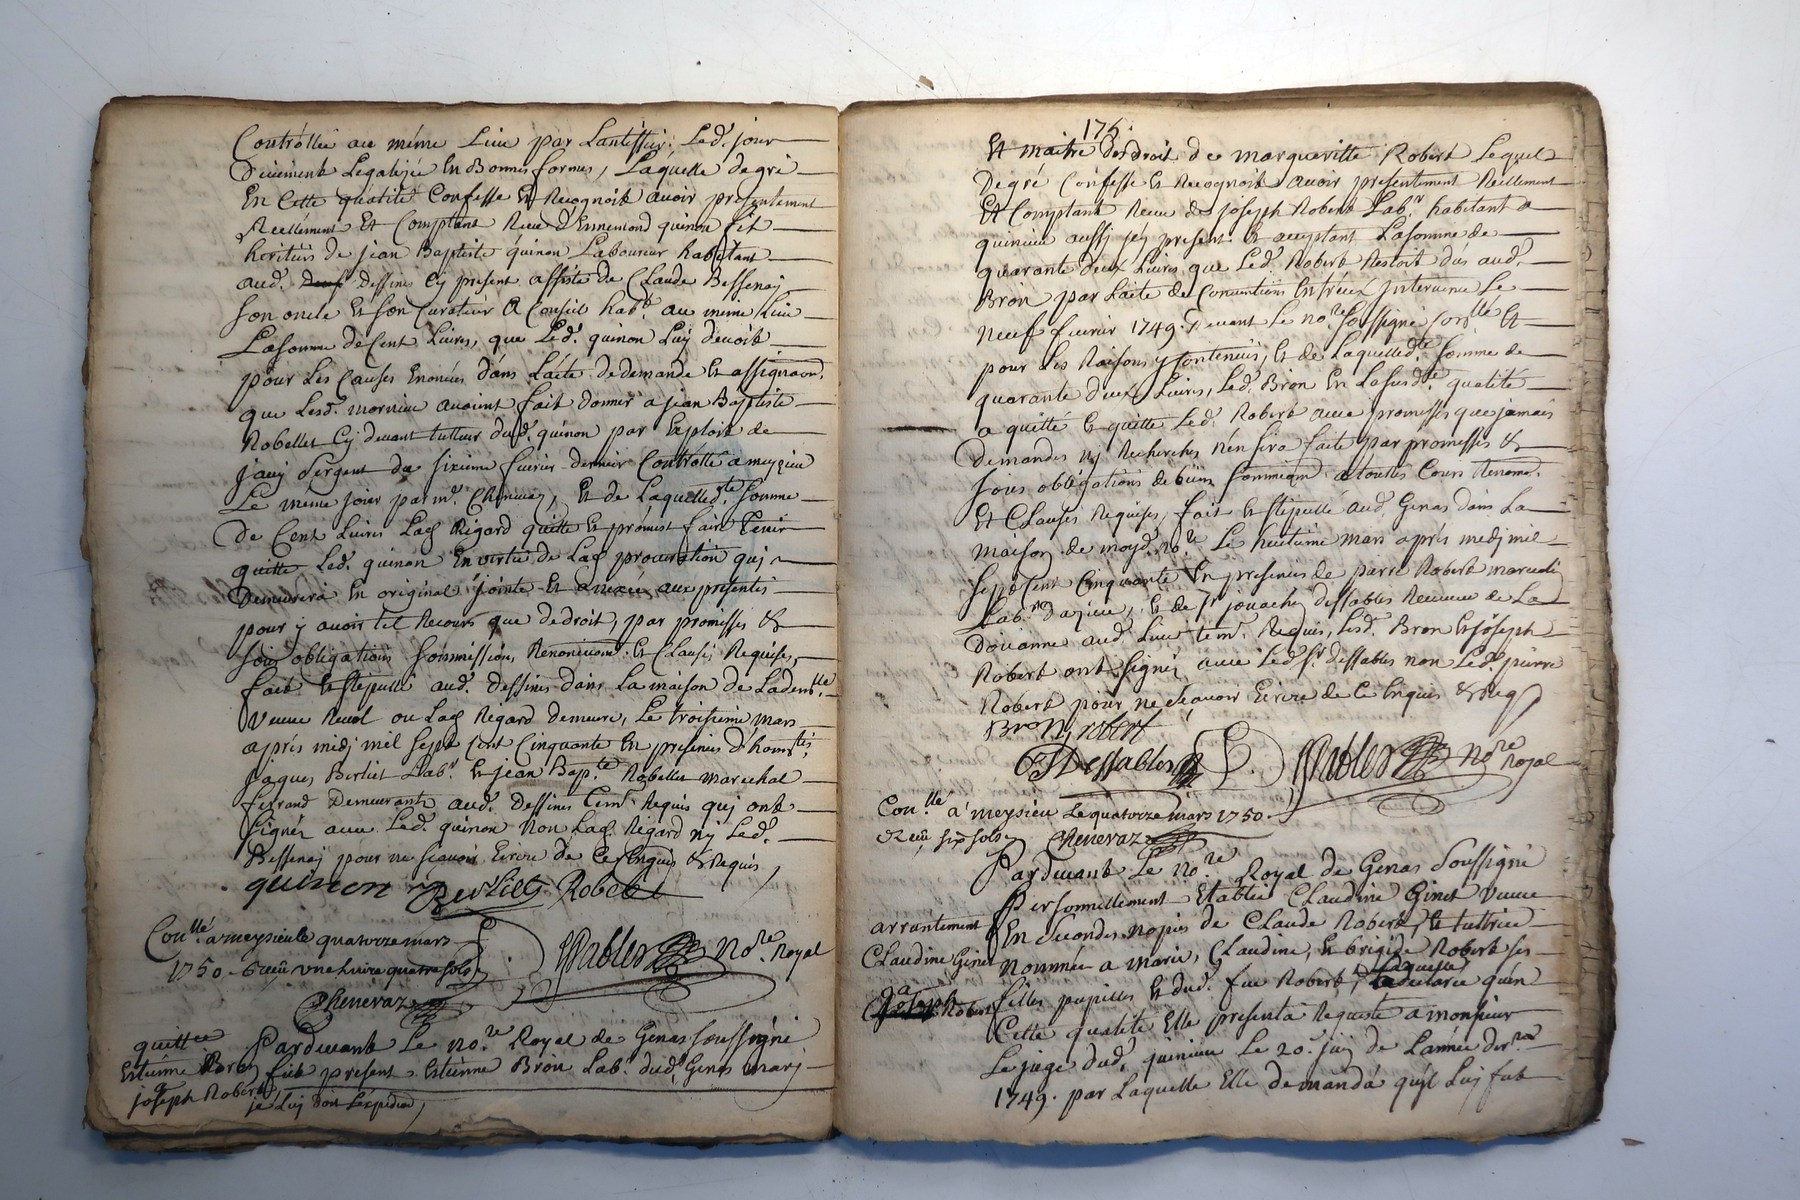 Contrôllée au même Lieu par Lantissier Led. jour
Duement Legalizée En Bonnes formes, Laquelle de gré
En Cette qualité Confesse Et Recognoit avoir presentement
Reellement Et Comptant Receu d'Ennemond quinon fils
heritier de jean Baptiste quinon Laboureur habitant
aud. dessines Cy present assisté de Claude Bessenay
son oncle Et son Curateur a Conseil hab.t au meme Lieu
La somme de Cent Livres, que Led. quinon Luy devoit
pour Les Causes Enoncées dans L'acte de demande Et assignaon.
que Lesd. mornieu avoient fait donner a jean Baptiste
Robellet Cy devant tutteur dud. quinon par Exploit de
jany sergent du sixieme fevrier dernier Controllé a meyzieu
Le meme jour par m.r Chenevaz, Et de Laquelled.te somme
De Cent Livres Lad. Régard quitte Et promet faire Tenir
quitte Led. quinon En vertu de Lad. procuration qui
Demeurera En original jointe Et annexée aux presentes
pour y avoir tel Recours que de droit, par promesses &
sous obligations soumissions Renonciaons. Et Clauses Requises,
fait Et stipullé aud. dessines dans La maison de Lade
veuve Revol ou Lad. Régard demeure, Le troisieme mars
apres midi mil sept cent Cinquante En presences d'
jaques Berliet Lab.r Et jean Bap.te Robellet marechal
ferrand Demeurants aud. dessines Tem. Requis qui ont
signés avec Led. quinon Non Lad. Régard ny Led.
Bessenay pour ne sçavoir Ecrire de Ce Enquis & Requis,
quinon Berliet Robelet
Con.llé a meysieu le quatorze mars
1750. Receu une Livre quatre sols
No.re Royal
Chenevaz
quittce
Estienne Bron
joseph Robert
Pardevant Le No.re Royal de Genas soussigné
fut present Estienne Bron Lab.r dud. Genas mary
je Luy
175.
Et maitre des droit de margueritte Robert Lequel
De gré Confesse Et Recognoit avoir presentement Reellement
Et Comptant Receu de joseph Robert Lab.r habitant a
quinieu aussy icy present Et acceptant La somme de
quarante deux Livres que Led. Robert Restoit dus aud.
Bron par L'acte de Conventions Entr'eux Intervenu Le
neuf fevrier 1749. Devant Le no.re soussigné Con.llé Et
pour Les Raisons y Contenues, Et de Laquelled.te somme de
quarante deux Livres, Led. Bron En La susd.te qualité
a quitté Et quitte Led. Robert avec promesses que jamais
Demandes ny Recherches n'en sera faite par promesses &
sous obligations de biens soumission a touttes Cours
Et Clauses Requises, fait Et stipullé aud. Genas dans La
maison de moyd. no.re Le huitieme mars après midj mil
sept Cent Cinquante En presences de parre Robert
Lab.r d'azieu, Et de s.r jouachin dessables Receveur de La
Doüanne aud. Lieu tem. Requis, Lesd. Bron Et joseph
Robert ont signés avec Led. s.r dessables non Led. pierre
Robert pour ne sçavoir Ecrire de Ce Enquis & Req
Bron j robert
Dessables No.re Royal
Con.llé a meysieu le quatorze mars 1750
Receu six sols Chenevaz
Pardevant Le No.re Royal de Genas soussigné
Personnellement Etablie Claudine Ginet veuve
En secondes nopces de Claude Robert, Et tuttrice
Nommée a marie, Claudine, Et brigide Robert ses
filles pupilles Et dud. feu Robert, Laquelle
Cette qualité Elle presenta Requeste a monsieur
Le juge dud. quinieu Le 20. juin de L'année der.re
1749. par Laquelle Elle demanda qu'il Luy fut
arrantement
Claudine Ginet
a
joseph Robert